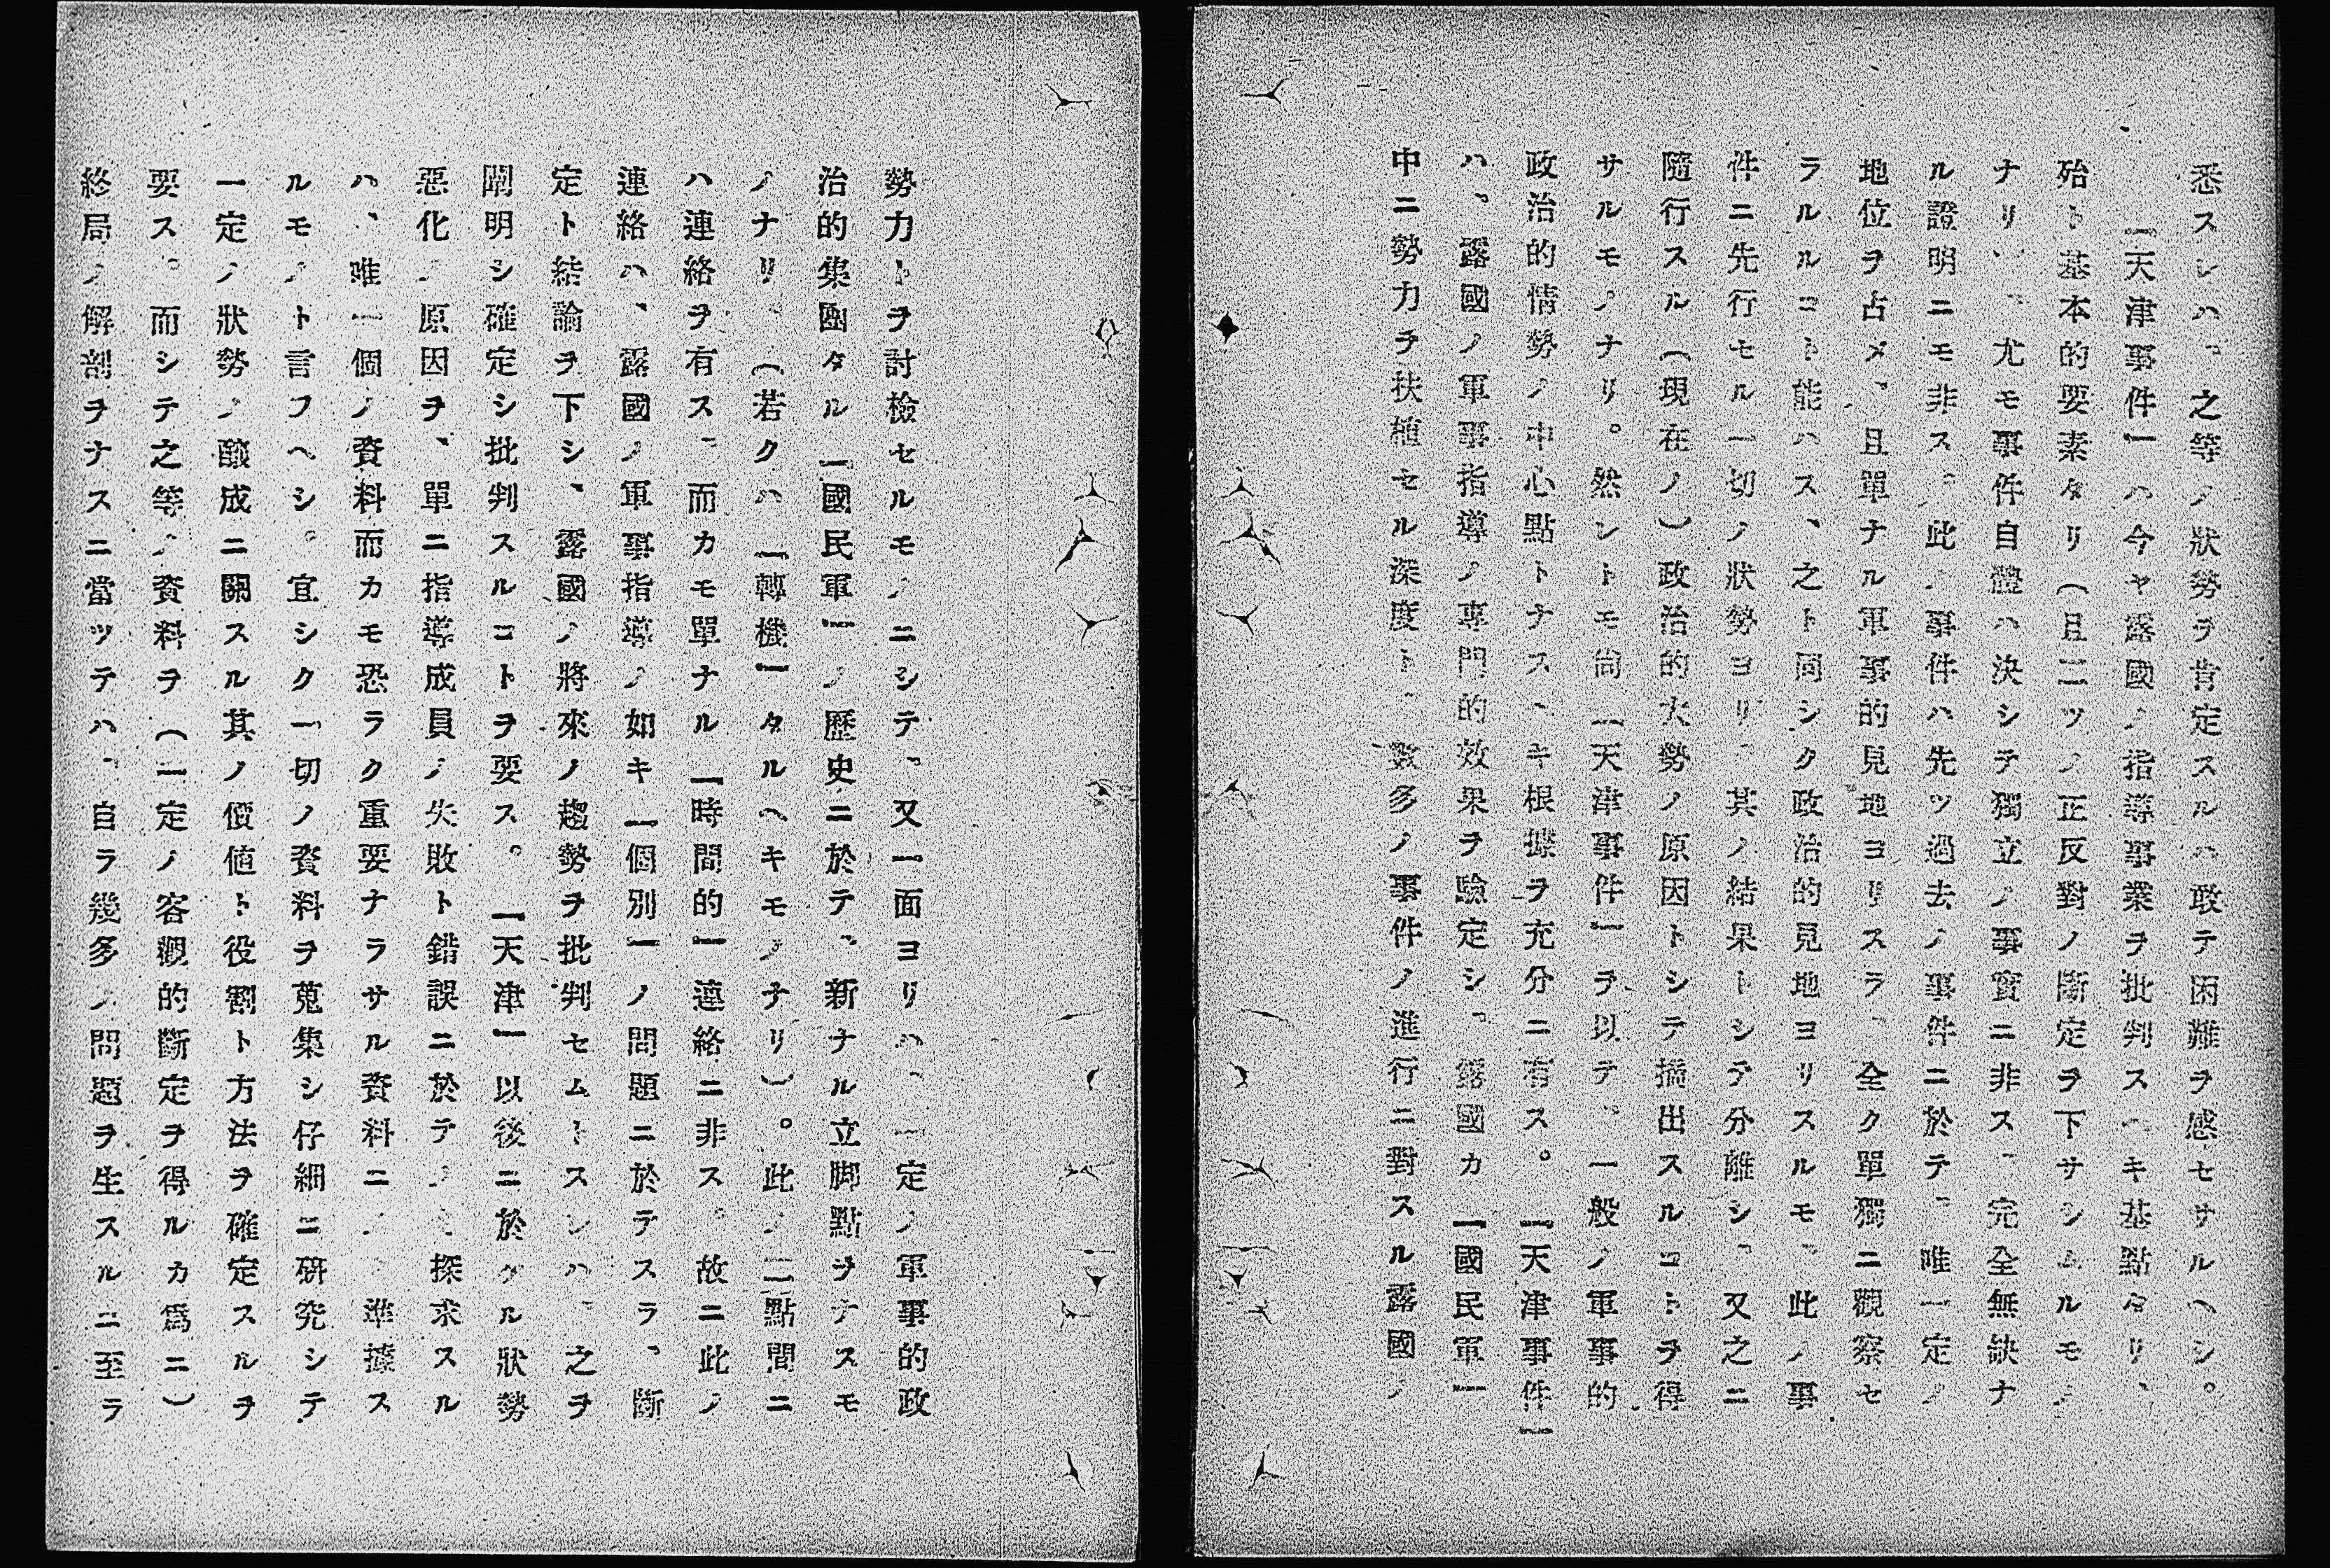 悉スレハ、之等ノ狀勢ヲ肯定スルハ敢テ困難ヲ感セサルヘシ。
「天津事件」ハ今ヤ露國ノ指導事業ヲ批判スヘキ基點タリ、
殆ト基本的要素タリ(且二ツノ正反對ノ斷定ヲ下サシムルモノ
ナリ)、尤モ事件自體ハ決シテ獨立ノ事實ニ非ス、完全無缺ナ
ル證明ニモ非ス、此ノ事件ハ先ツ過去ノ事件ニ於テ、唯一定ノ
地位ヲ占メ、且單ナル軍事的見地ヨリスラ、全ク單獨ニ觀察セ
ラルルコト能ハス、之ト同シク政治的見地ヨリスルモ、此ノ事
件ニ先行セル一切ノ狀勢ヨリ、其ノ結果トシテ分離シ、又之ニ
隨行スル(現在ノ)政治的大勢ノ原因トシテ摘出スルコトヲ得
サルモノナリ。然シトモ尙「天津事件」ヲ以テ、一般ノ軍事的
政治的情勢ノ中心點トナスヘキ根據ヲ充分ニ有ス。「天津事件」
ハ、露國ノ軍事指導ノ專門的效果ヲ驗定シ、露國カ「國民軍」
中ニ勢力ヲ扶植セル深度ト、數多ノ事件ノ進行ニ對スル露國ノ
勢力トヲ討檢セルモノニシテ、又一面ヨリハ、一定ノ軍事的政
治的集團タル「國民軍」ノ歷史ニ於テ、新ナル立脚點ヲナスモ
ノナリ、(若クハ「轉機」タルヘキモノナリ)。此ノ二點間ニ
ハ連絡ヲ有ス、而カモ單ナル「時間的」連絡ニ非ス。故ニ此ノ
連絡ハ、露國ノ軍事指導ノ如キ「個別」ノ問題ニ於テスラ、斷
定ト結論ヲ下シ、露國ノ將來ノ趨勢ヲ批判セムトスレハ、之ヲ
闡明シ確定シ批判スルコトヲ要ス。「天津」以後ニ於ケル狀勢
惡化ノ原因ヲ、單ニ指導成員ノ失敗ト錯誤ニ於テノミ探求スル
ハ、唯一個ノ資料而カモ恐ラク重要ナラサル資料ニノミ準據ス
ルモノト言フヘシ。宜シク一切ノ資料ヲ蒐集シ仔細ニ硏究シテ
一定ノ狀勢ノ釀成ニ關スル其ノ價値ト役割ト方法ヲ確定スルヲ
要ス。而シテ之等ノ資料ヲ(一定ノ客觀的斷定ヲ得ルカ爲ニ)
終局ノ解剖ヲナスニ當ツテハ、自ラ幾多ノ問題ヲ生スルニ至ラ